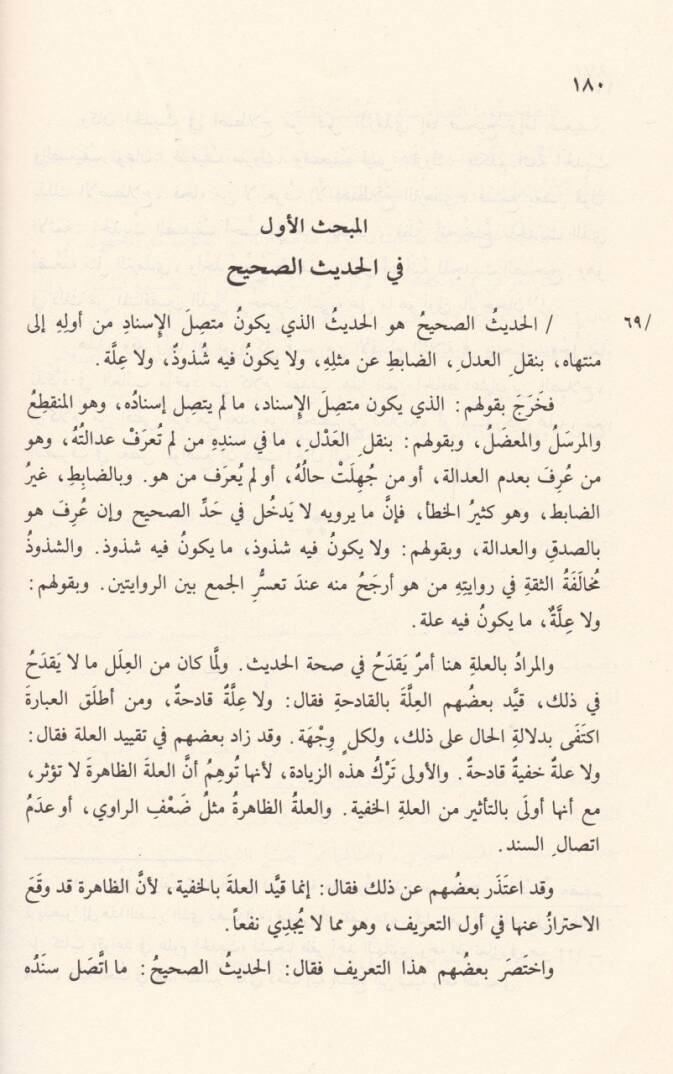 ١٨٠
المبحث الأول
في الحديث الصحيح
/٦٩
/ الحديثُ الصحيحُ هو الحديثُ الذي يكونُ متصِلَ الإِسنادِ من أولِهِ إلى
منتهاه، بنقلِ العدلِ، الضابطِ عن مثلِهِ، ولا يكونُ فيه شُذوذٌ، ولا عِلَّة.
فخَرَجَ بقولهم: الذي يكون متصِلَ الإِسناد، ما لم يتصِل إسنادُه، وهو المنقطِعُ
والمرسَلُ والمعضَلُ، وبقولهم: بنقلِ العَدْلِ، ما في سندِهِ من لم تُعرَفْ عدالتُهُ، وهو
من عُرِفَ بعدم العدالة، أو من جُهِلَتْ حالُهُ، أو لم يُعرَف من هو. وبالضابِطِ، غيرُ
الضابط، وهو كثيرُ الخطأ، فإنَّ ما يرويه لا يَدخُل في حَدِّ الصحيح وإن عُرِفَ هو
بالصدقِ والعدالة، وبقولهم: ولا يكونُ فيه شذوذ، ما يكونُ فيه شذوذ. والشذوذُ
مُخالَفَةُ الثقةِ في روايتِهِ من هو أرجَحُ منه عندَ تعسُّرِ الجمع بين الروايتين. وبقولهم:
ولا عِلَّةٌ، ما يكونُ فيه علة.
والمرادُ بالعلةِ هنا أمرٌ يَقدَحُ في صحة الحديث. ولمَّا كان من العِلَل ما لا يَقدَحُ
في ذلك، قيَّد بعضُهم العِلَّةَ بالقادحةِ فقال: ولا عِلَّةٌ قادحةٌ، ومن أطلَق العبارةَ
اكتَفَى بدلالةِ الحال على ذلك، ولكلٍ وِجْهَة. وقد زاد بعضهم في تقييد العلة فقال:
ولا علةٌ خفيةٌ قادحةٌ. والأولى تَرْكُ هذه الزيادة، لأنها تُوهِمُ أنَّ العلةَ الظاهرةَ لا تؤثر،
مع أنها أولَى بالتأثير من العلةِ الخفية. والعلةُ الظاهرةُ مثلُ ضَعْفِ الراوي، أو عدَمُ
اتصالِ السند.
وقد اعتَذَر بعضُهم عن ذلك فقال: إنما قيَّد العلةَ بالخفية، لأنَّ الظاهرة قد وقَعَ
الاحترازُ عنها في أول التعريف، وهو مما لا يُجدِي نفعاً.
واختَصَرَ بعضُهم هذا التعريف فقال: الحديثُ الصحيحُ: ما اتَّصَل سنَدُه